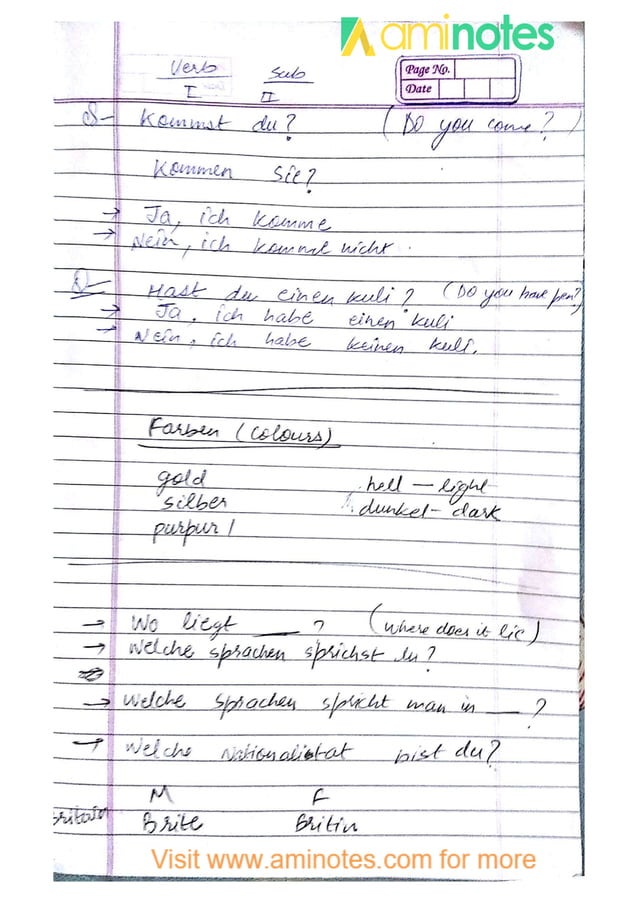 aminotes
Verb Sub
I II
Page No.
Date
Kommst du? (Do you come?)
Kommen Sie?
→ Ja, ich komme
→ Nein, ich komme nicht.
Hast du einen kuli? (Do you have pen?)
→ Ja, ich habe einen kuli
→ Nein, ich habe keinen kuli.
Farben (Colours)
gold hell — light
silber dunkel - dark
purpur
→ Wo liegt ___ ? (where does it lie)
→ Welche sprachen sprichst du?
→ Welche sprachen spricht man in __ ?
→ Welche Nationalitat bist du?
M F
Britain Brite Britin
Visit www.aminotes.com for more